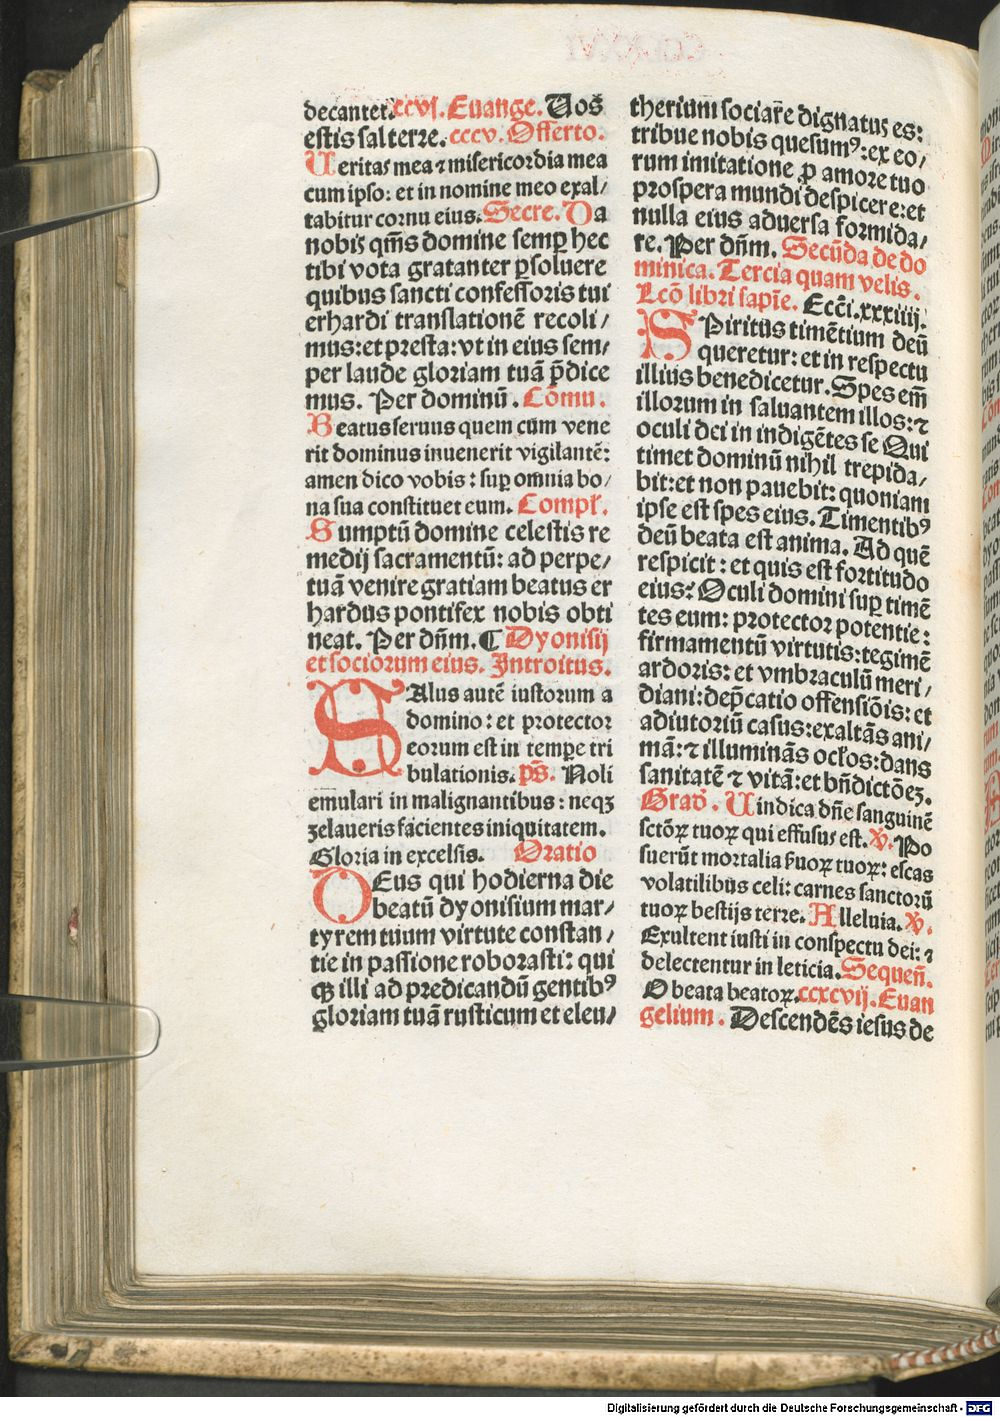 decantet. ccvj. Euange. Uos
estis sal terre. cccv. Offerto.
Ueritas mea ⁊ misericordia mea
cum ipso: et in nomine meo exal/
tabitur cornu eius. Secre. Da
nobis qm̄s domine semꝑ hec
tibi vota gratanter ꝑsoluere
quibus sancti confessoris tui
erhardi translationē recoli/
mus: et presta: vt in eius sem/
per laude gloriam tuā p̄dice
mus. Per dominū. Cōmu.
Beatus seruus quem cum vene
rit dominus inuenerit vigilantē:
amen dico vobis: suꝑ omnia bo/
na sua constituet eum. Compl̄.
Sumptū domine celestis re
medij sacramentū: ad perpe/
tuā venire gratiam beatus er
hardus pontifex nobis obti
neat. Per dn̄m. ¶ Dyonisij
et sociorum eius. Introitus.
SAlus autē iustorum a
domino: et protector
eorum est in tempe tri
bulationis. ps̄. Noli
emulari in malignantibus: neqꝫ
zelaueris facientes iniquitatem.
Gloria in excelsis. Oratio
DEus qui hodierna die
beatū dyonisium mar/
tyrem tuum virtute constan/
tie in passione roborasti: qui
qꝫ illi ad predicandū gentibꝰ
gloriam tuā rusticum et eleu/
therium sociar̄e dignatus es:
tribue nobis quesumꝰ: ex eo/
rum imitatione ꝓ amore tuo
prospera mundi despicere: et
nulla eius aduersa formida/
re. Per dn̄m. Secūda de do
minica. Tercia quam velis.
Lcō libri sapīe. Eccī. xxxiiij.
SPiritus timētium deū
queretur: et in respectu
illius benedicetur. Spes em̄
illorum in saluantem illos: ⁊
oculi dei in indigētes se Qui
timet dominū nihil trepida/
bit: et non pauebit: quoniam
ipse est spes eius. Timentibꝰ
deū beata est anima. Ad quē
respicit: et quis est fortitudo
eius: Oculi domini suꝑ timē
tes eum: protector potentie:
firmamentū virtutis: tegimē
ardoris: et vmbraculū meri/
diani: dep̄catio offensiōis: et
adiutoriū casus: exaltās ani/
mā: ⁊ illuminās ocl̄os: dans
sanitatē ⁊ vitā: et bn̄dictōeꝫ.
Grad̄. Uindica dn̄e sanguinē
sctōꝝ tuoꝝ qui effusus est. V̄. Po
suerūt mortalia s̄uoꝝ tuoꝝ: escas
volatilibus celi: carnes sanctorū
tuoꝝ bestijs terre. Alleluia. V̄.
Exultent iusti in conspectu dei: ⁊
delectentur in leticia. Sequen̄.
O beata beatoꝝ. ccxcvij. Euan
gelium. Descendēs iesus de
Digitalisierung gefördert durch die Deutsche Forschungsgemeinschaft - DFG